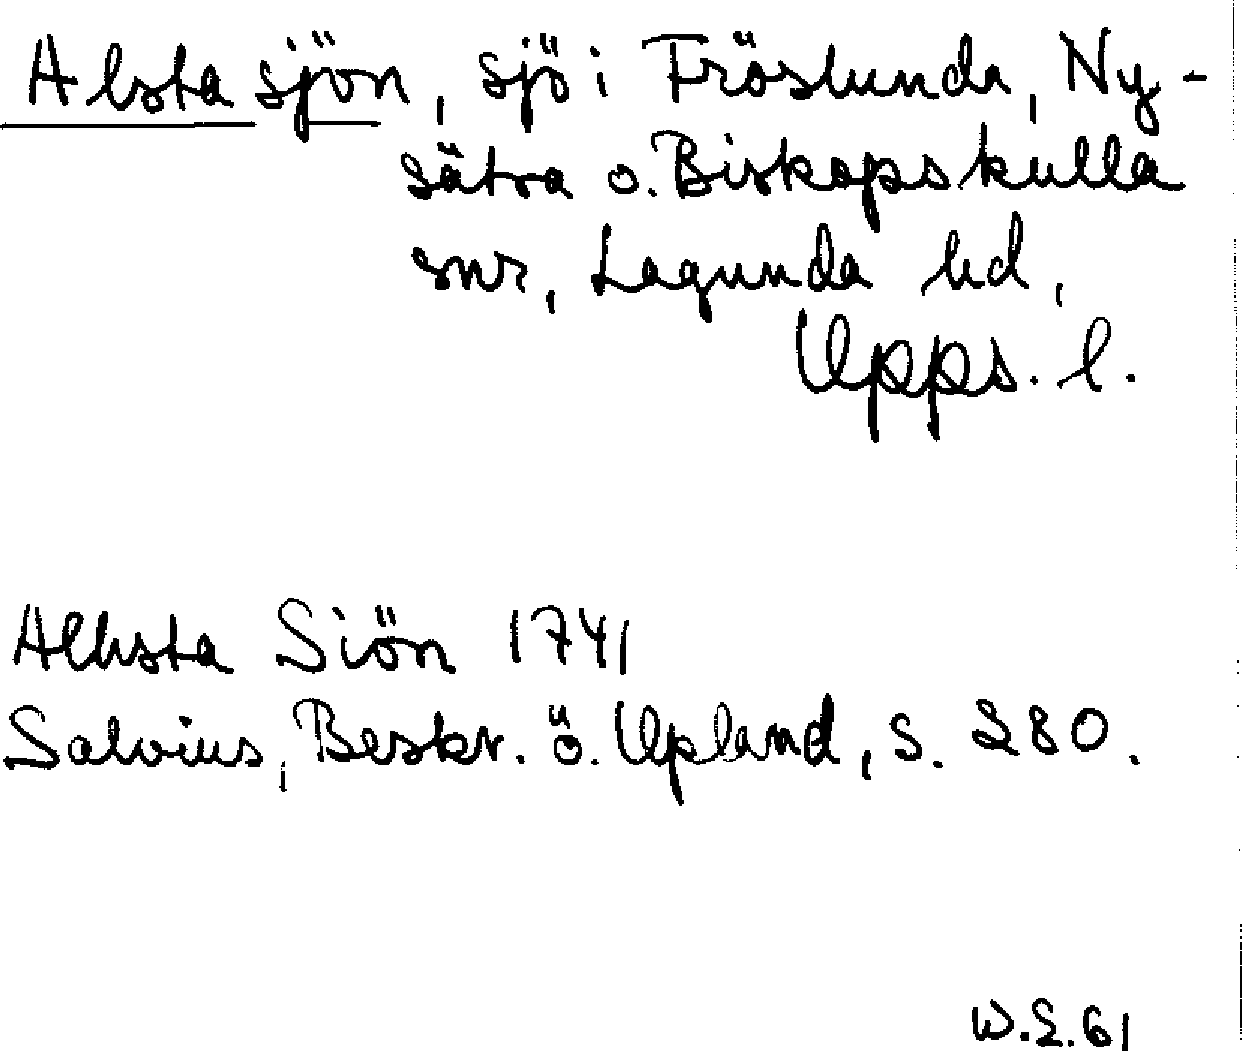 Alstasjön, sjö i Fröslunda, Ny-
sätra o. Biskopskulla
snr, Lagunda hd,
Upps. l.
Alhsta Siön 1741
Salvius, Beskr. ö. Upland, s. 280.
W.S.61